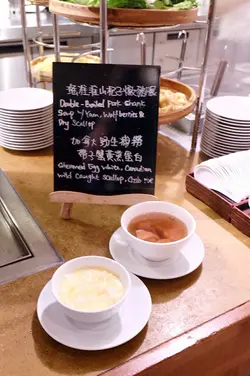 山杞子燉
Double-Boiled Pork Shank
Soup w/ Yam, Wolfberries &
Dry Scallop
加拿大野生捕撈
帶子蟹黃蒸蛋白
Steamed Egg white, Canadian
wild caught Scallop, Crab roe